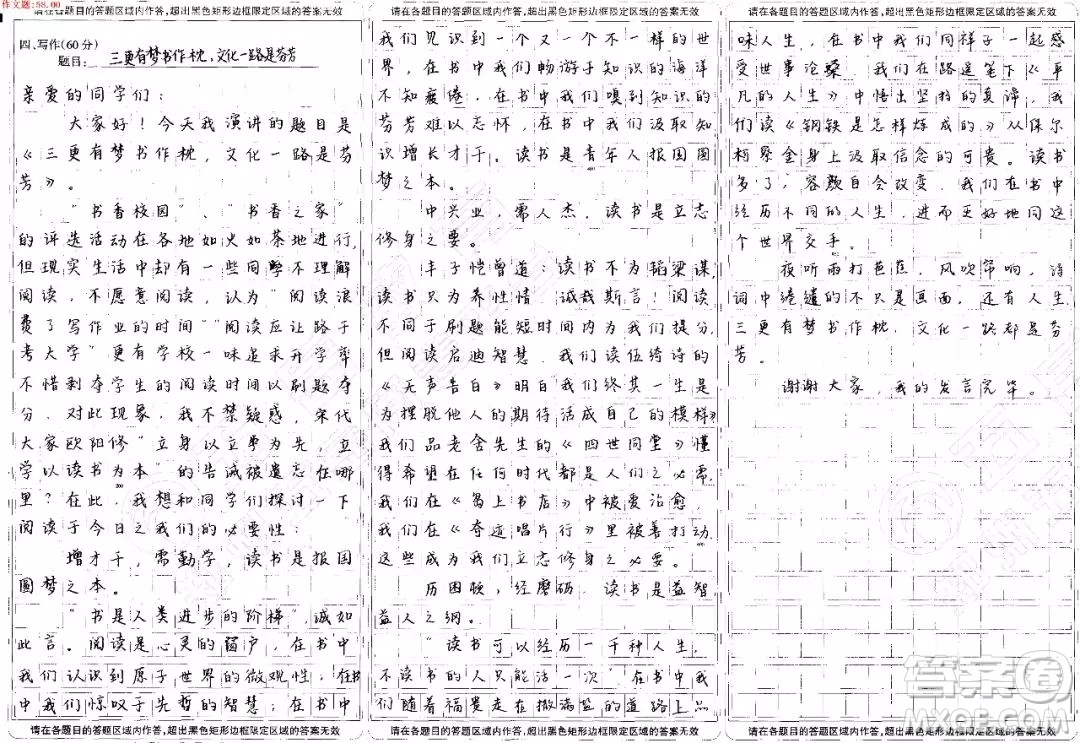 作文题:58.00
请在各题目的答题区域内作答,超出黑色矩形边框限定区域的答案无效
四、写作(60分)
题目: 三更有梦书作枕,文化一路是芬芳
亲爱的同学们:
大家好!今天我演讲的题目是
《三更有梦书作枕,文化一路是芬
芳》。
“书香校园”、“书香之家”
的评选活动在各地如火如荼地进行,
但现实生活中却有一些同学不理解
阅读,不愿意阅读,认为“阅读浪
费了写作业的时间”“阅读应让路于
考大学”更有学校一味追求升学率
不惜剥夺学生的阅读时间以刷题夺
分,对此现象,我不禁疑惑,宋代
大家欧阳修“立身以立事为先,立
学以读书为本”的告诫被遗忘在哪
里?在此,我想和同学们探讨一下
阅读于今日之我们的必要性:
增才干,需勤学,读书是报国
圆梦之本。
“书是人类进步的阶梯”诚如
此言。阅读是心灵的窗户,在书中
我们认识到原子世界的微观性;在书
中我们惊叹于先哲的智慧;在书中
请在各题目的答题区域内作答,超出黑色矩形边框限定区域的答案无效
请在各题目的答题区域内作答,超出黑色矩形边框限定区域的答案无效
我们见识到一个又一个不一样的世
界,在书中我们畅游于知识的海洋
不知疲倦,在书中我们嗅到知识的
芬芳难以忘怀,在书中我们汲取知
识增长才干。读书是青年人报国圆
梦之本。
中兴业,需人杰,读书是立志
修身之要。
丰子恺曾道:读书不为稻粱谋,
读书只为养性情,诚哉斯言!阅读
不同于刷题能短时间内为我们提分,
但阅读启迪智慧,我们读伍绮诗的
《无声告白》明白我们终其一生是
为摆脱他人的期待活成自己的模样》
我们品老舍先生的《四世同堂》懂
得希望在任何时代都是人们之必需,
我们在《岛上书店》中被爱治愈,
我们在《奇迹唱片行》里被善打动,
这些成为我们立志修身之必要。
历困顿,经磨砺,读书是益智
益人之纲。
“读书可以经历一千种人生,
不读书的人只能活一次”在书中我
们随着福贵走在撒满盐的道路上品
请在各题目的答题区域内作答,超出黑色矩形边框限定区域的答案无效
请在各题目的答题区域内作答,超出黑色矩形边框限定区域的答案无效
味人生,在书中我们同祥子一起感
受世事沧桑,我们在路遥笔下《平
凡的人生》中悟出坚持的真谛,我
们读《钢铁是怎样炼成的》从保尔
柯察金身上汲取信念的可贵。读书
多了,容颜自会改变,我们在书中
经历不同的人生,进而更好地同这
个世界交手。
夜听雨打芭蕉,风吹帘响,诗
词中缱绻的不只是画面,还有人生,
三更有梦书作枕,文化一路都是芬
芳。
谢谢大家,我的发言完毕。
请在各题目的答题区域内作答,超出黑色矩形边框限定区域的答案无效
答案圈
MXQE.COM